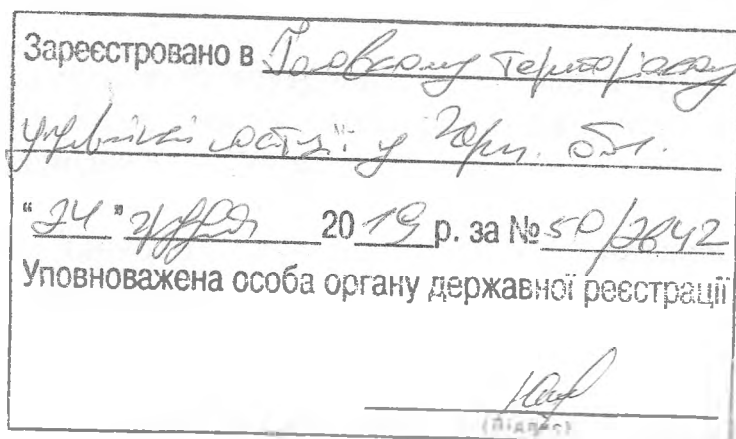 Зареєстровано в Головному територіальному
управлінні юстиції у Черн. обл.
"24" грудня 2019 р. за № 50/2842
Уповноважена особа органу державної реєстрації
(підпис)